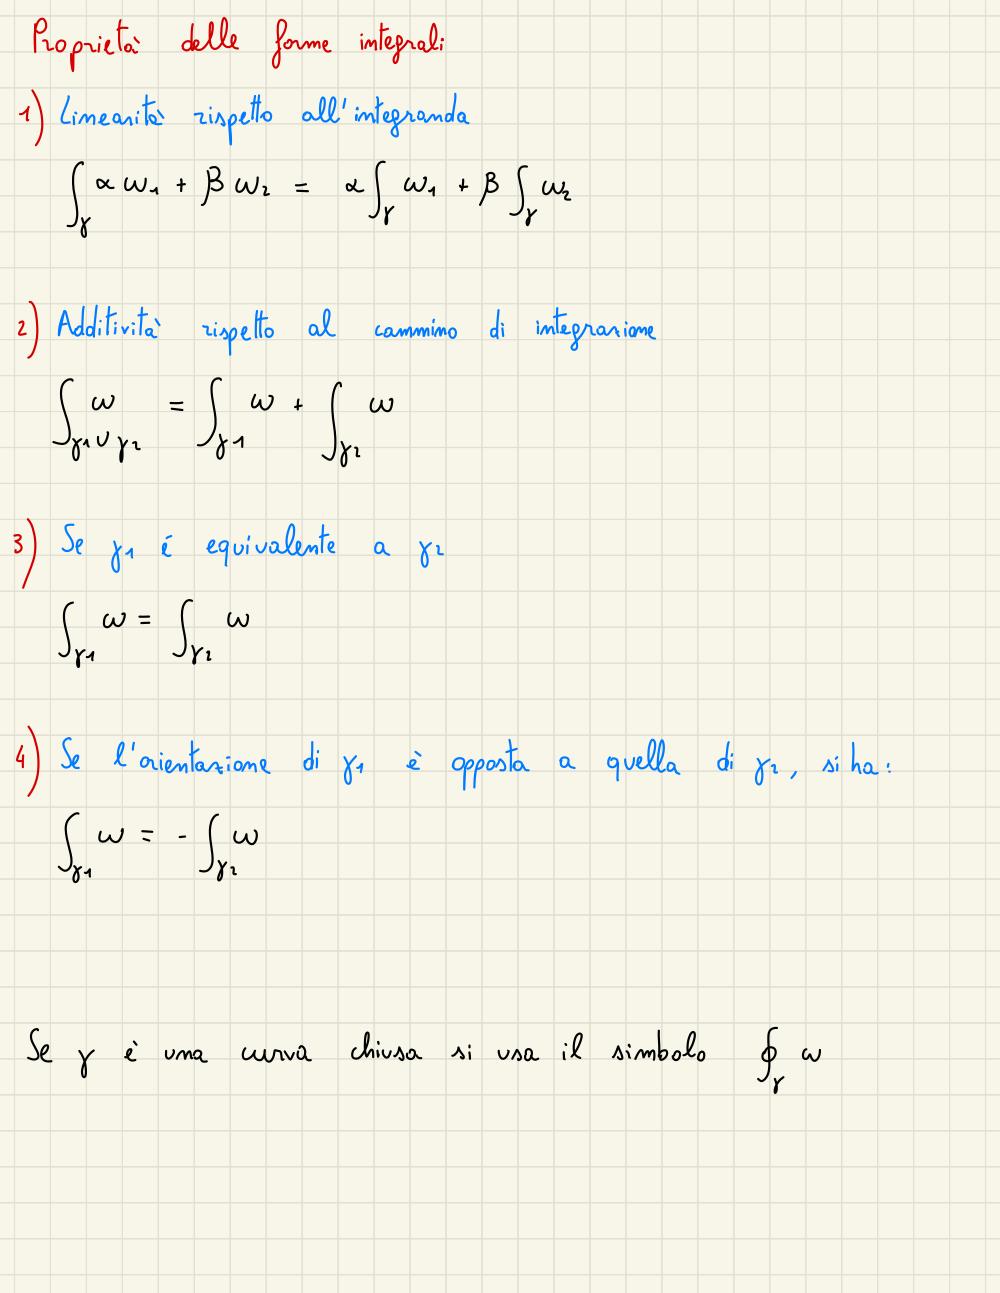 Proprietà delle forme integrali
1) Linearità rispetto all'integranda
∫_γ α ω₁ + β ω₂ = α ∫_γ ω₁ + β ∫_γ ω₂
2) Additività rispetto al cammino di integrazione
∫_{γ₁ ∪ γ₂} ω = ∫_{γ₁} ω + ∫_{γ₂} ω
3) Se γ₁ é equivalente a γ₂
∫_{γ₁} ω = ∫_{γ₂} ω
4) Se l'orientazione di γ₁ è opposta a quella di γ₂, si ha:
∫_{γ₁} ω = - ∫_{γ₂} ω
Se γ è una curva chiusa si usa il simbolo ∮_γ ω